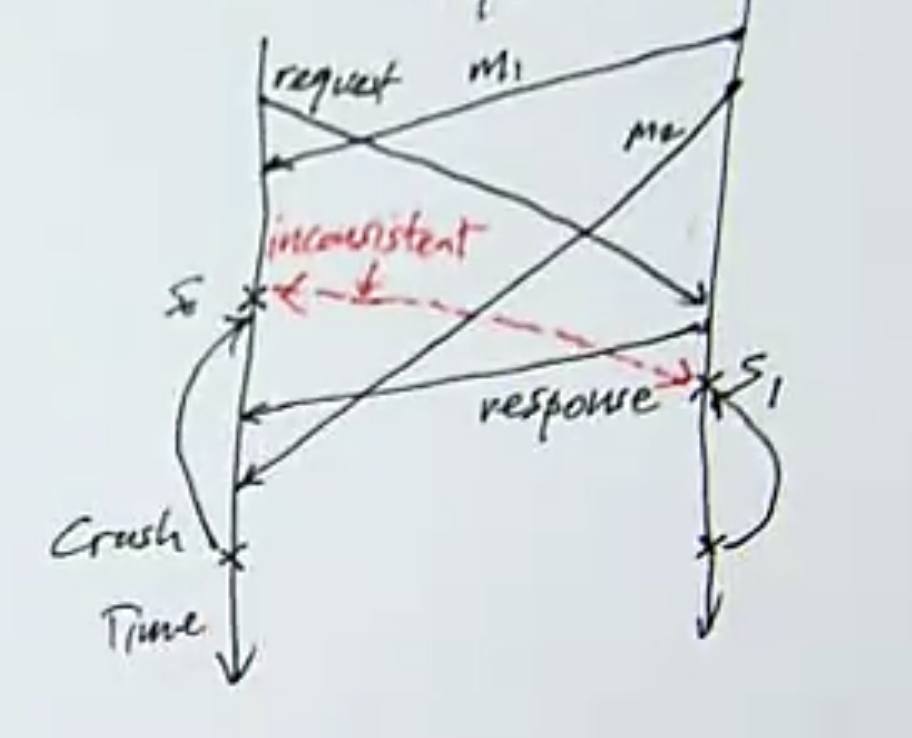 request
m₁
m₂
inconsistent
S₀
S₁
response
Crash
Time